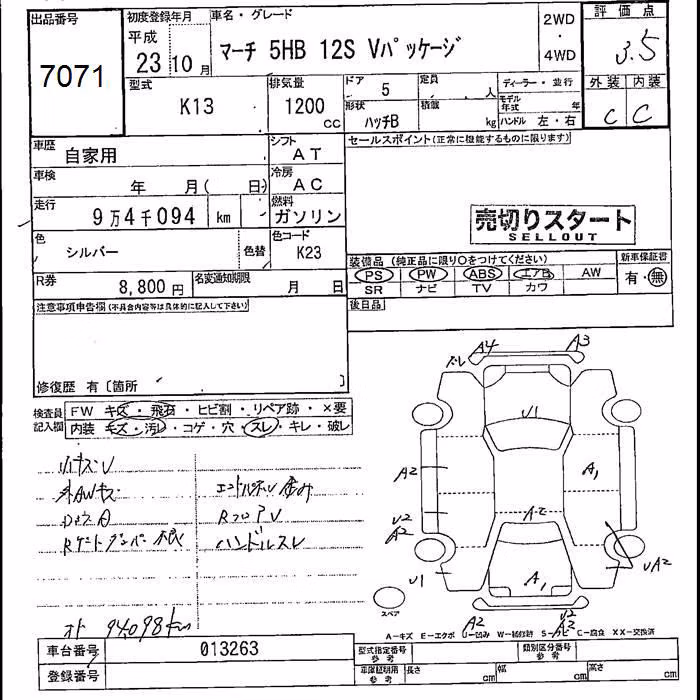 出品番号
7071
初度登録年月
平成
23 10 月
車名・グレード
マーチ 5HB 12S Vパッケージ
2WD
・
4WD
評価点
3.5
外装 内装
C C
型式
K13
排気量
1200
cc
ドア
5
定員
人
形状
ハッチB
積載
kg
ディーラー・並行
モデル年式 年
ハンドル 左・右
車歴
自家用
シフト
AT
セールスポイント(正常に機能するものに限ります)
車検
年 月( 日)
冷房
AC
走行
9万4千094 km
燃料
ガソリン
売切りスタート
SELLOUT
色
シルバー
色替
色コード
K23
装備品(純正品に限り○をつけてください)
PS PW ABS エアB AW
SR ナビ TV カワ
新車保証書
有・無
R券
8,800円
名変通知期限
月 日
後日品
注意事項申告欄(不具合内容等は具体的に記入して下さい)
修復歴 有〔箇所 〕
検査員記入欄
FW キズ・飛石・ヒビ割・リペア跡・×要
内装 キズ・汚レ・コゲ・穴・スレ・キレ・破レ
ハンドルスレ
94098km
A4
A3
U1
A2
A1
U2
A2
A2
U1
A1
UA2
スペア
A2
U2
A2
A-キズ E-エクボ U-凹み W-補修跡 S-サビ C-腐食 XX-交換済
車台番号
013263
登録番号
型式指定番号
参考
類別区分番号
参考
車庫証明用
参考
長さ cm
幅 cm
高さ cm